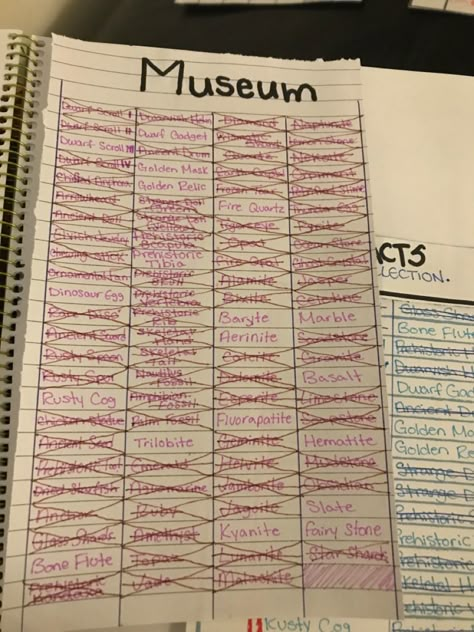 Museum
Dwarf Scroll I
Dwarf Scroll II
Dwarf Scroll III
Dwarf Scroll IV
Arrowhead
Ancient Doll
Chewing Stick
Ornamental Fan
Dinosaur Egg
Rare Disc
Ancient Sword
Rusty Spoon
Rusty Spur
Rusty Cog
Chicken Statue
Ancient Seed
Dried Starfish
Anchor
Glass Shards
Bone Flute
Prehistoric
Dwarvish Helm
Dwarf Gadget
Ancient Drum
Golden Mask
Golden Relic
Prehistoric
Tibia
Prehistoric
Skeletal
Nautilus
Fossil
Amphibian
Fossil
Palm Fossil
Trilobite
Emerald
Aquamarine
Ruby
Amethyst
Topaz
Jade
Diamond
Prismatic
Shard
Quartz
Frozen Tear
Fire Quartz
Tigerseye
Opal
Fire Opal
Alamite
Bixite
Baryte
Aerinite
Calcite
Dolomite
Esperite
Fluorapatite
Geminite
Helvite
Jamborite
Jagoite
Kyanite
Lunarite
Malachite
Neptunite
Lemon Stone
Nekoite
Orpiment
Pyrite
Ocean Stone
Ghost Crystal
Jasper
Celestine
Marble
Sandstone
Granite
Basalt
Limestone
Soapstone
Hematite
Mudstone
Obsidian
Slate
Fairy Stone
Star Shards
ACTS
LLECTION.
Glass Sha
Bone Flute
Prehistoric
Dwarvish H
Dwarf Gad
Ancient D
Golden Ma
Golden Re
Strange
Strange
Prehistoric
Prehistoric
Prehistoric
Skeletal H
Rusty Cog